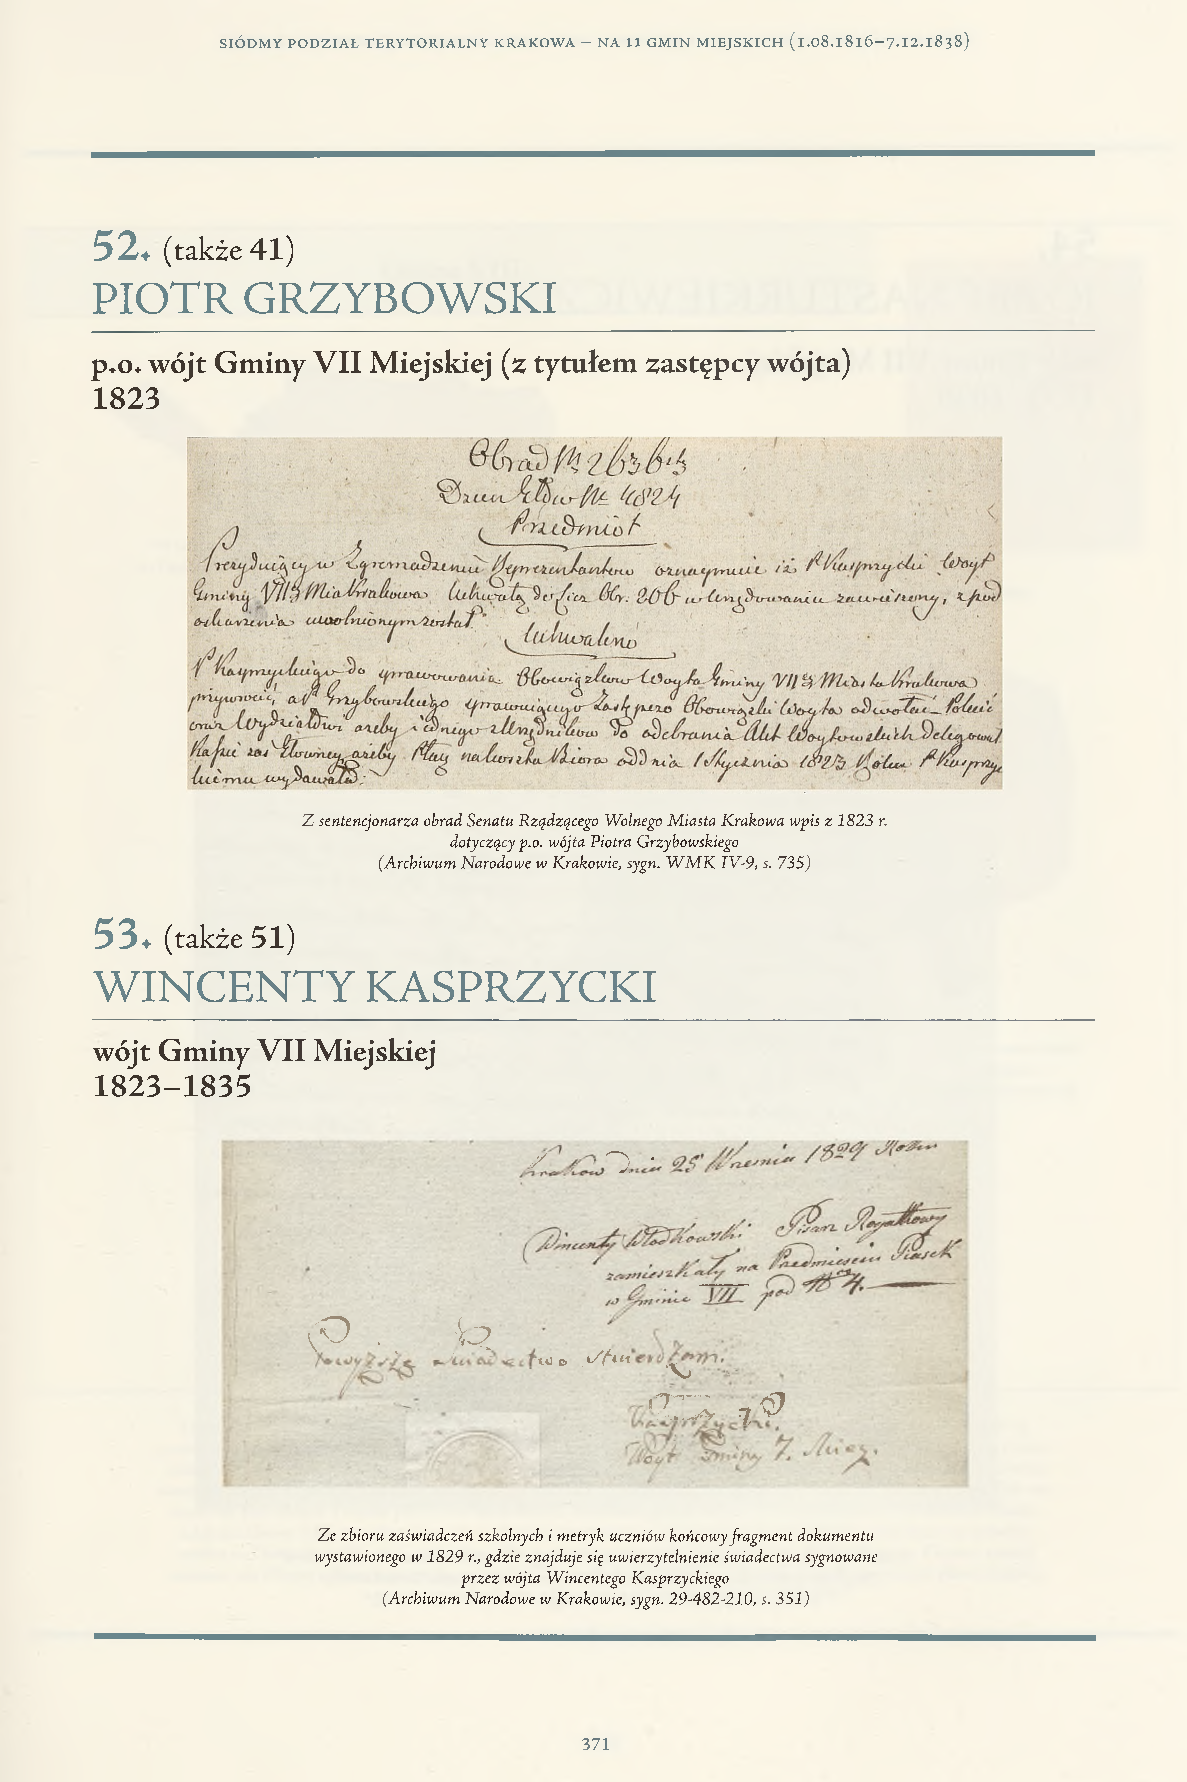 SIÓDMY PODZIAŁ TERYTORIALNY KRAKOWA – NA 11 GMIN MIEJSKICH (1.08.1816–7.12.1838)
52. (także 41)
PIOTR GRZYBOWSKI
p.o. wójt Gminy VII Miejskiej (z tytułem zastępcy wójta)
1823
Obrad Nr 2636
Dzien Głów Nr 4824
Przedmiot
Prezyduiący w Zgromadzeniu Reprezentantow oznaymuie iż P Kasprzycki Woyt
Gminy VII Miasta Krakowa Uchwałą do licz. Obr. 206 w Urzędowaniu zawieszony, z pod
oskarżenia uwolnionym został
Uchwalono
P Kasprzyckiego do sprawowania Obowiązków Woyta Gminy VII Miasta Krakowa
przywrócić, a P Grzybowskiego sprawuiącego Zastępczo Obowiązki Woyta odwołać – Polecić
oraz Wydziałowi ażeby iednego z Urzędników do odebrania Akt Woytowskich delegował
Kassie zaś Głowney ażeby Płacę na koszta Biora od dnia 1 Stycznia 1823 Roku P Kasprzyc
kiemu wydawała.
Z sentencjonarza obrad Senatu Rządzącego Wolnego Miasta Krakowa wpis z 1823 r.
dotyczący p.o. wójta Piotra Grzybowskiego
(Archiwum Narodowe w Krakowie, sygn. WMK IV-9, s. 735)
53. (także 51)
WINCENTY KASPRZYCKI
wójt Gminy VII Miejskiej
1823–1835
Krakow dnia 25 Wrzesnia 1829 Roku
Wincenty Włodkowski Pisarz Rogatkowy
zamieszkały na Przedmieściu Piasek
w Gminie VII pod Nro 4.
Powyższe Swiadectwo stwierdzam.
Kasprzycki.
Woyt Gminy 7. Miey.
Ze zbioru zaświadczeń szkolnych i metryk uczniów końcowy fragment dokumentu
wystawionego w 1829 r., gdzie znajduje się uwierzytelnienie świadectwa sygnowane
przez wójta Wincentego Kasprzyckiego
(Archiwum Narodowe w Krakowie, sygn. 29-482-210, s. 351)
371